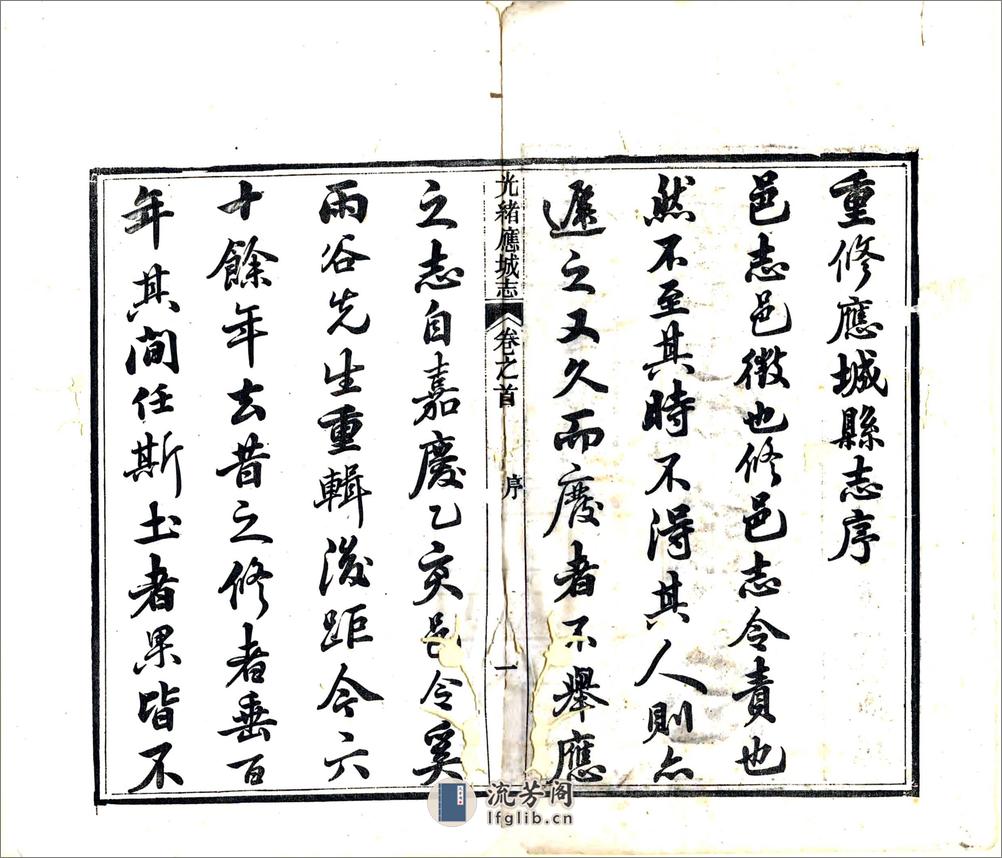 重修應城縣志序
邑志邑徵也修邑志令責也
然不至其時不得其人則亦
遲之又久而廢者不舉應
光緒應城志 卷之首 序 一
之志自嘉慶乙亥邑令奚
雨谷先生重輯後距今六
十餘年去昔之修者垂百
年其間任斯土者果皆不
流芳阁
lfglib.cn